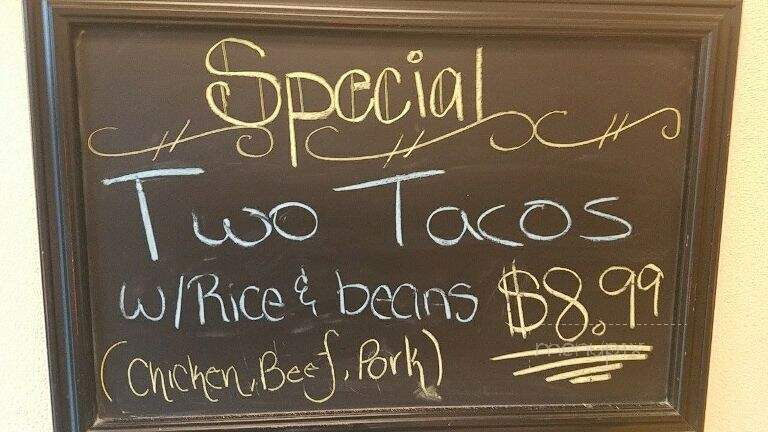 Special
Two Tacos
w/Rice & beans $8.99
(Chicken, Beef, Pork)
menupix